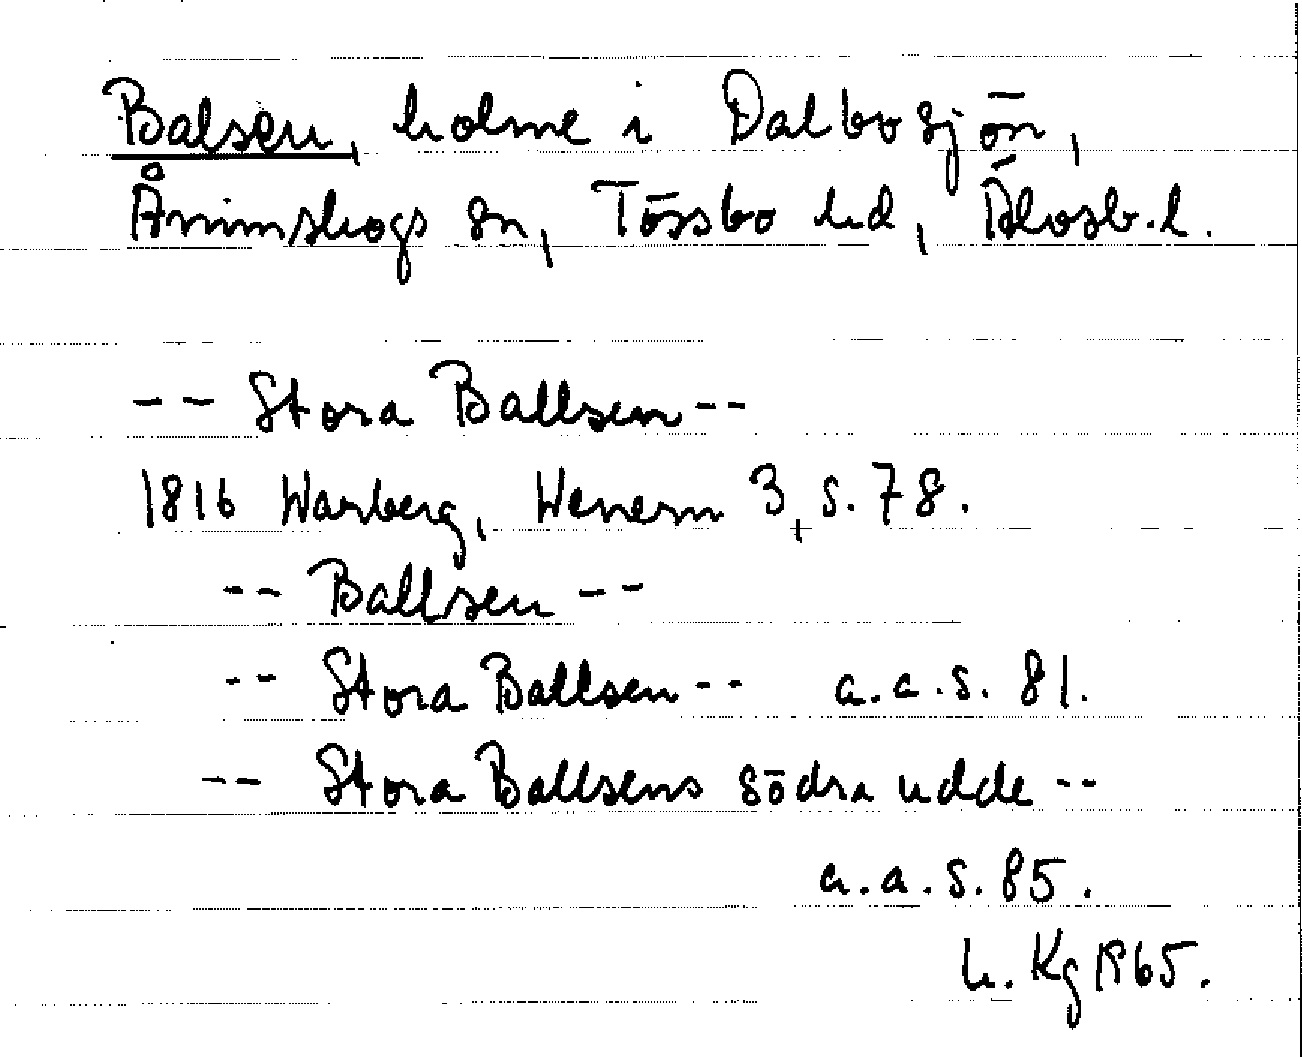 Balsen, holme i Dalbosjön,
Ånimskogs sn, Tössbo hd, Älvsb.l.
-- Stora Ballsen --
1816 Warberg, Wenern 3, s. 78.
-- Ballsen --
-- Stora Ballsen -- a.a.s. 81.
-- Stora Ballsens södra udde --
a.a.s. 85.
h. Kg 1965.